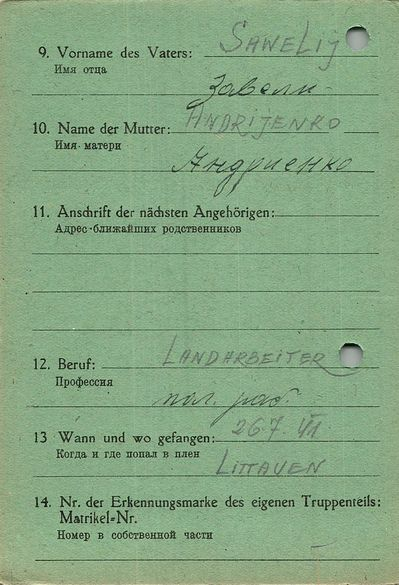 9. Vorname des Vaters: SAWELIJ
Имя отца
Завели
10. Name der Mutter: ANDRIJENKO
Имя матери
Андриенко
11. Anschrift der nächsten Angehörigen:
Адрес ближайших родственников
12. Beruf: LANDARBEITER
Профессия
пол. раб.
13 Wann und wo gefangen: 26.7.
Когда и где попал в плен
LITTAUEN
14. Nr. der Erkennungsmarke des eigenen Truppenteils:
Matrikel=Nr.
Номер в собственной части